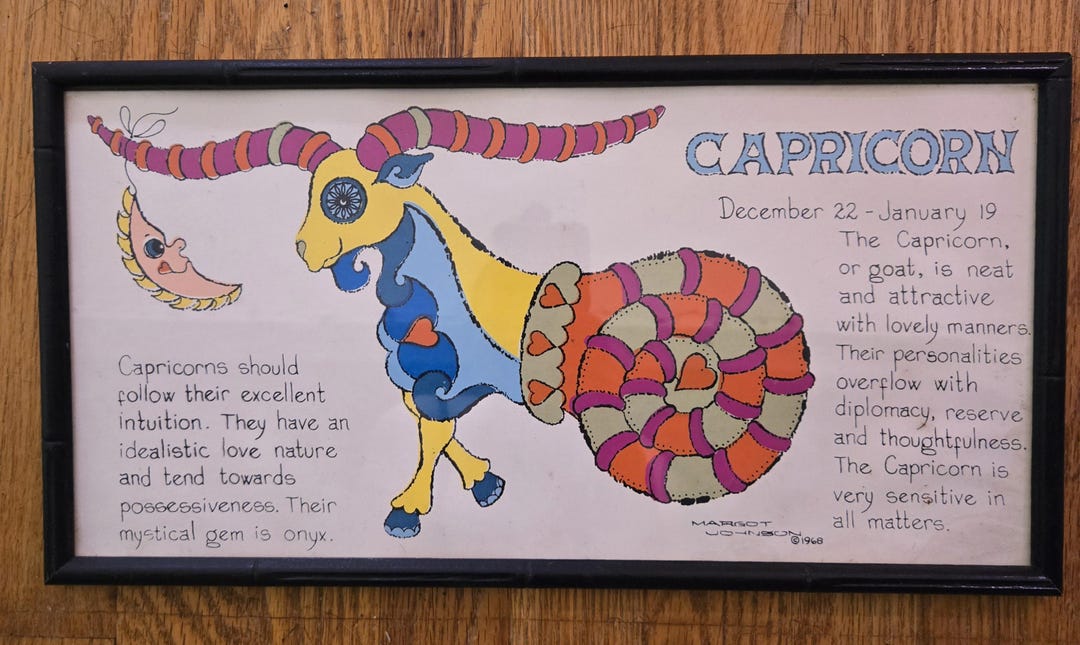 CAPRICORN
December 22 - January 19
The Capricorn,
or goat, is neat
and attractive
with lovely manners.
Their personalities
overflow with
diplomacy, reserve
and thoughtfulness.
The Capricorn is
very sensitive in
all matters.
Capricorns should
follow their excellent
intuition. They have an
idealistic love nature
and tend towards
possessiveness. Their
mystical gem is onyx.
MARGOT
JOHNSON
©1968